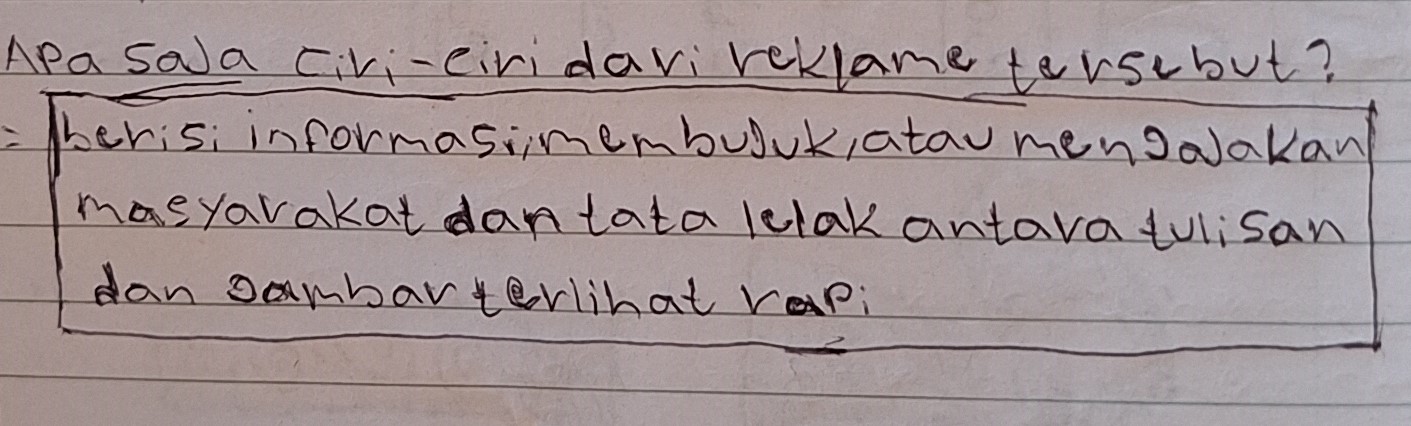 Apa saja ciri-ciri dari reklame tersebut?
= berisi informasi, membujuk, atau mengajakan
masyarakat dan tata lelak antara tulisan
dan gambar terlihat rapi